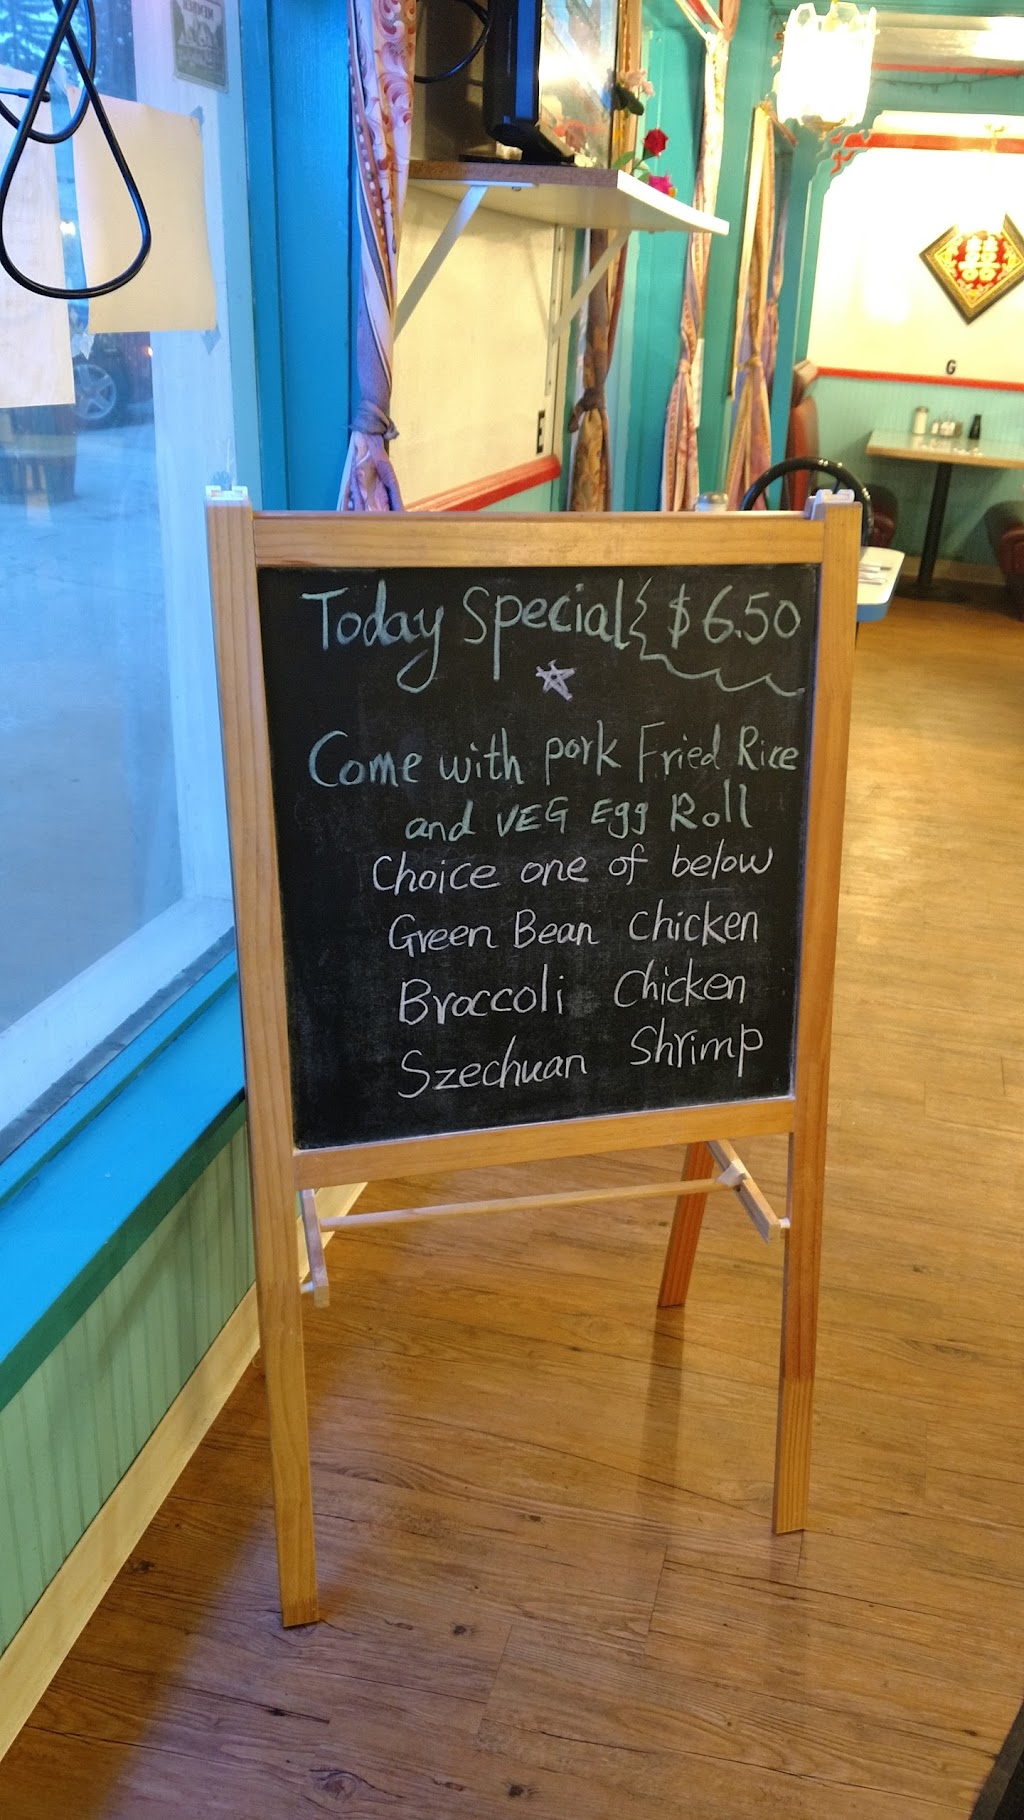 MEMBER
Today Special $6.50
Come with pork Fried Rice
and VEG Egg Roll
Choice one of below
Green Bean Chicken
Broccoli Chicken
Szechuan Shrimp
E
G
囍